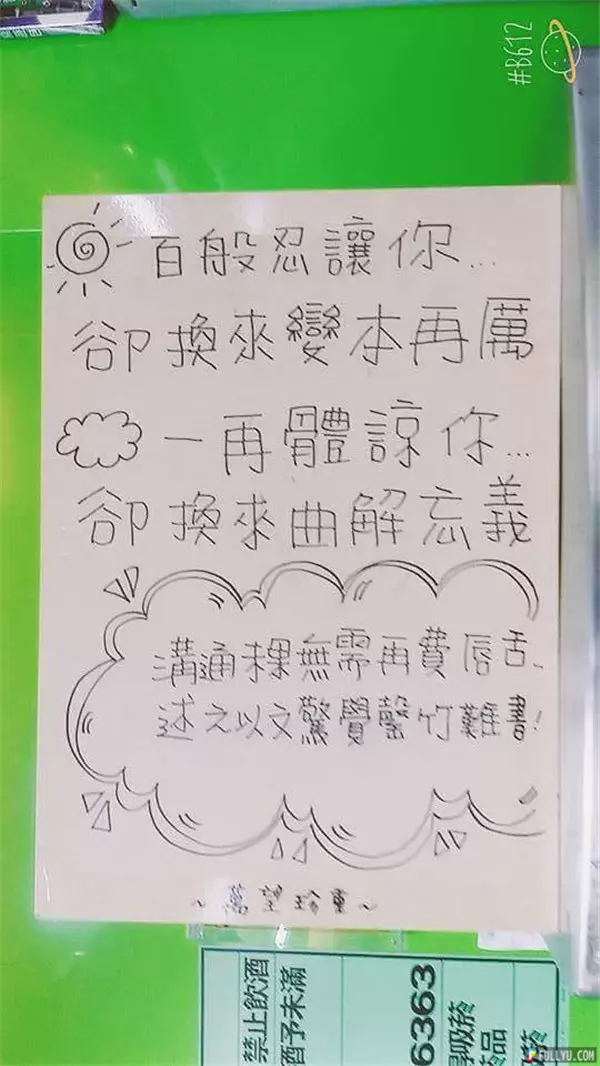 #B612
百般忍讓你...
卻換來變本再厲
一再體諒你...
卻換來曲解忘義
溝通粿無需再費唇舌、
述之以文驚覺罄竹難書!
~萬望珍重~
禁止飲酒
酒予未滿
6363
吸菸
菸品
吸菸
FULLYU.COM